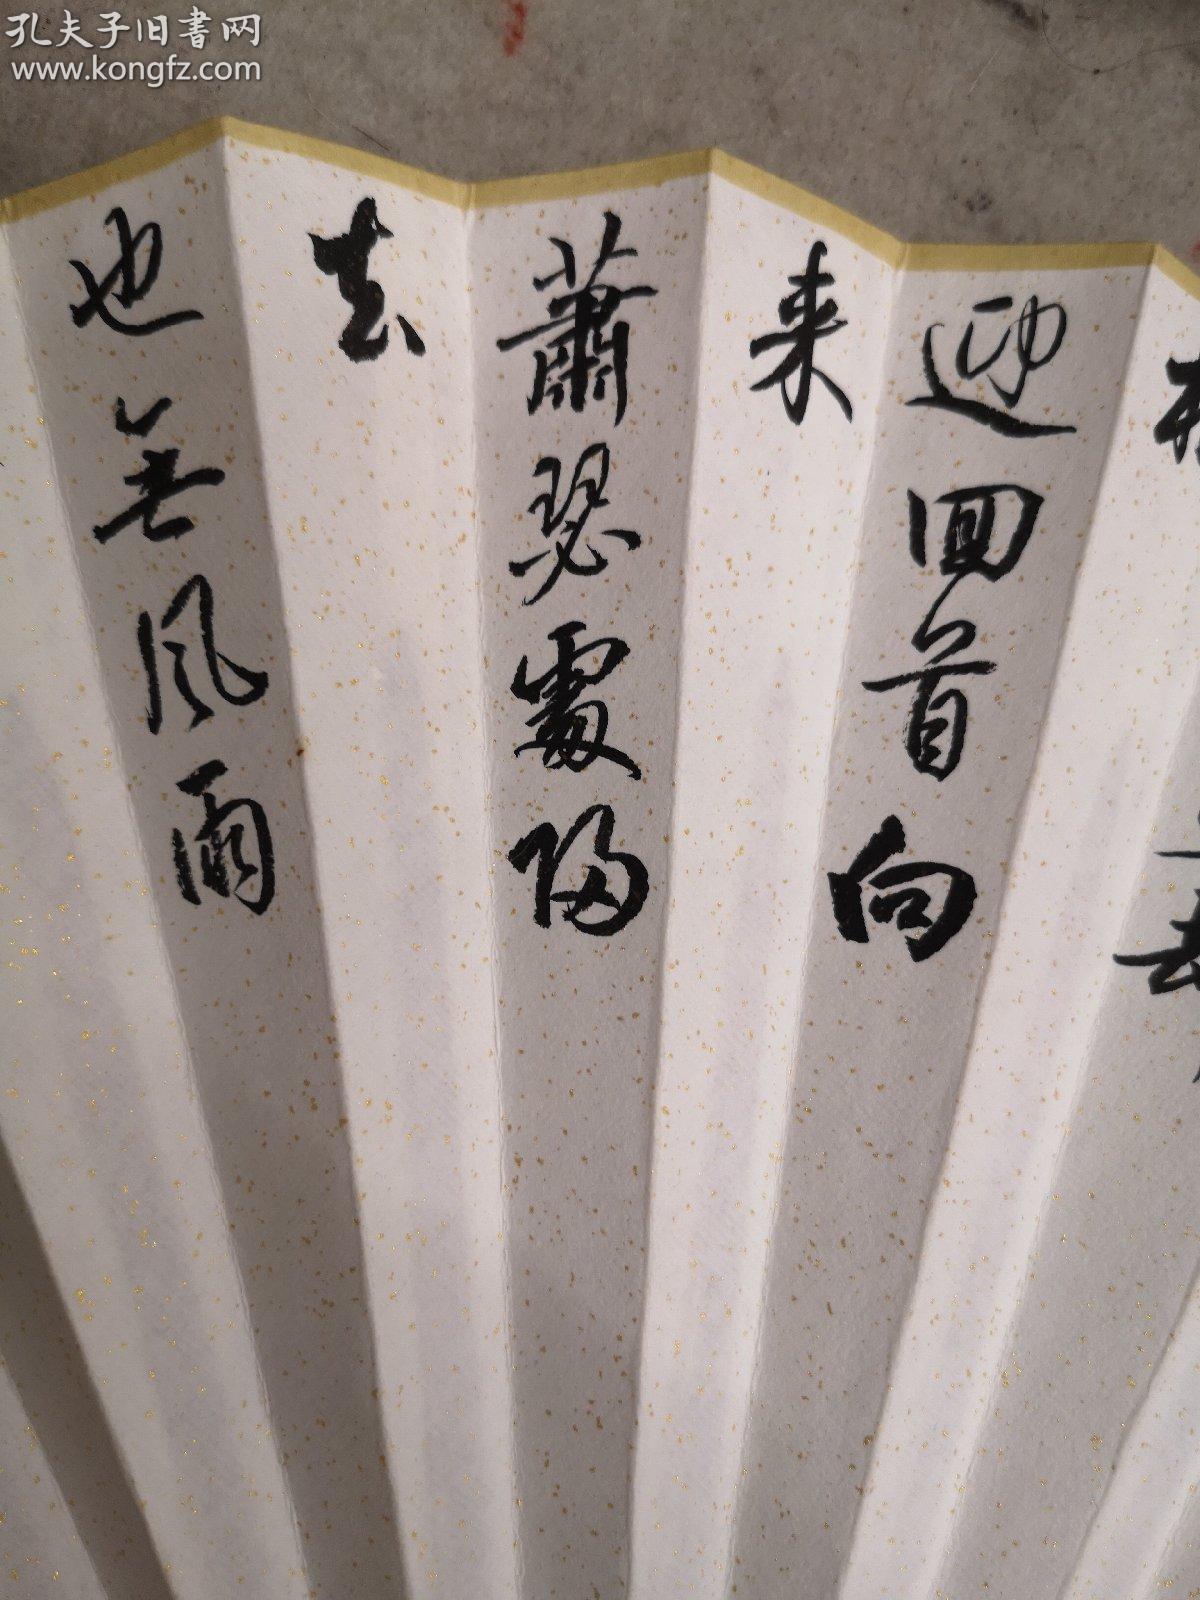 孔夫子旧書网
www.kongfz.com
迎回首向
来
蕭瑟處歸
去
也無風雨